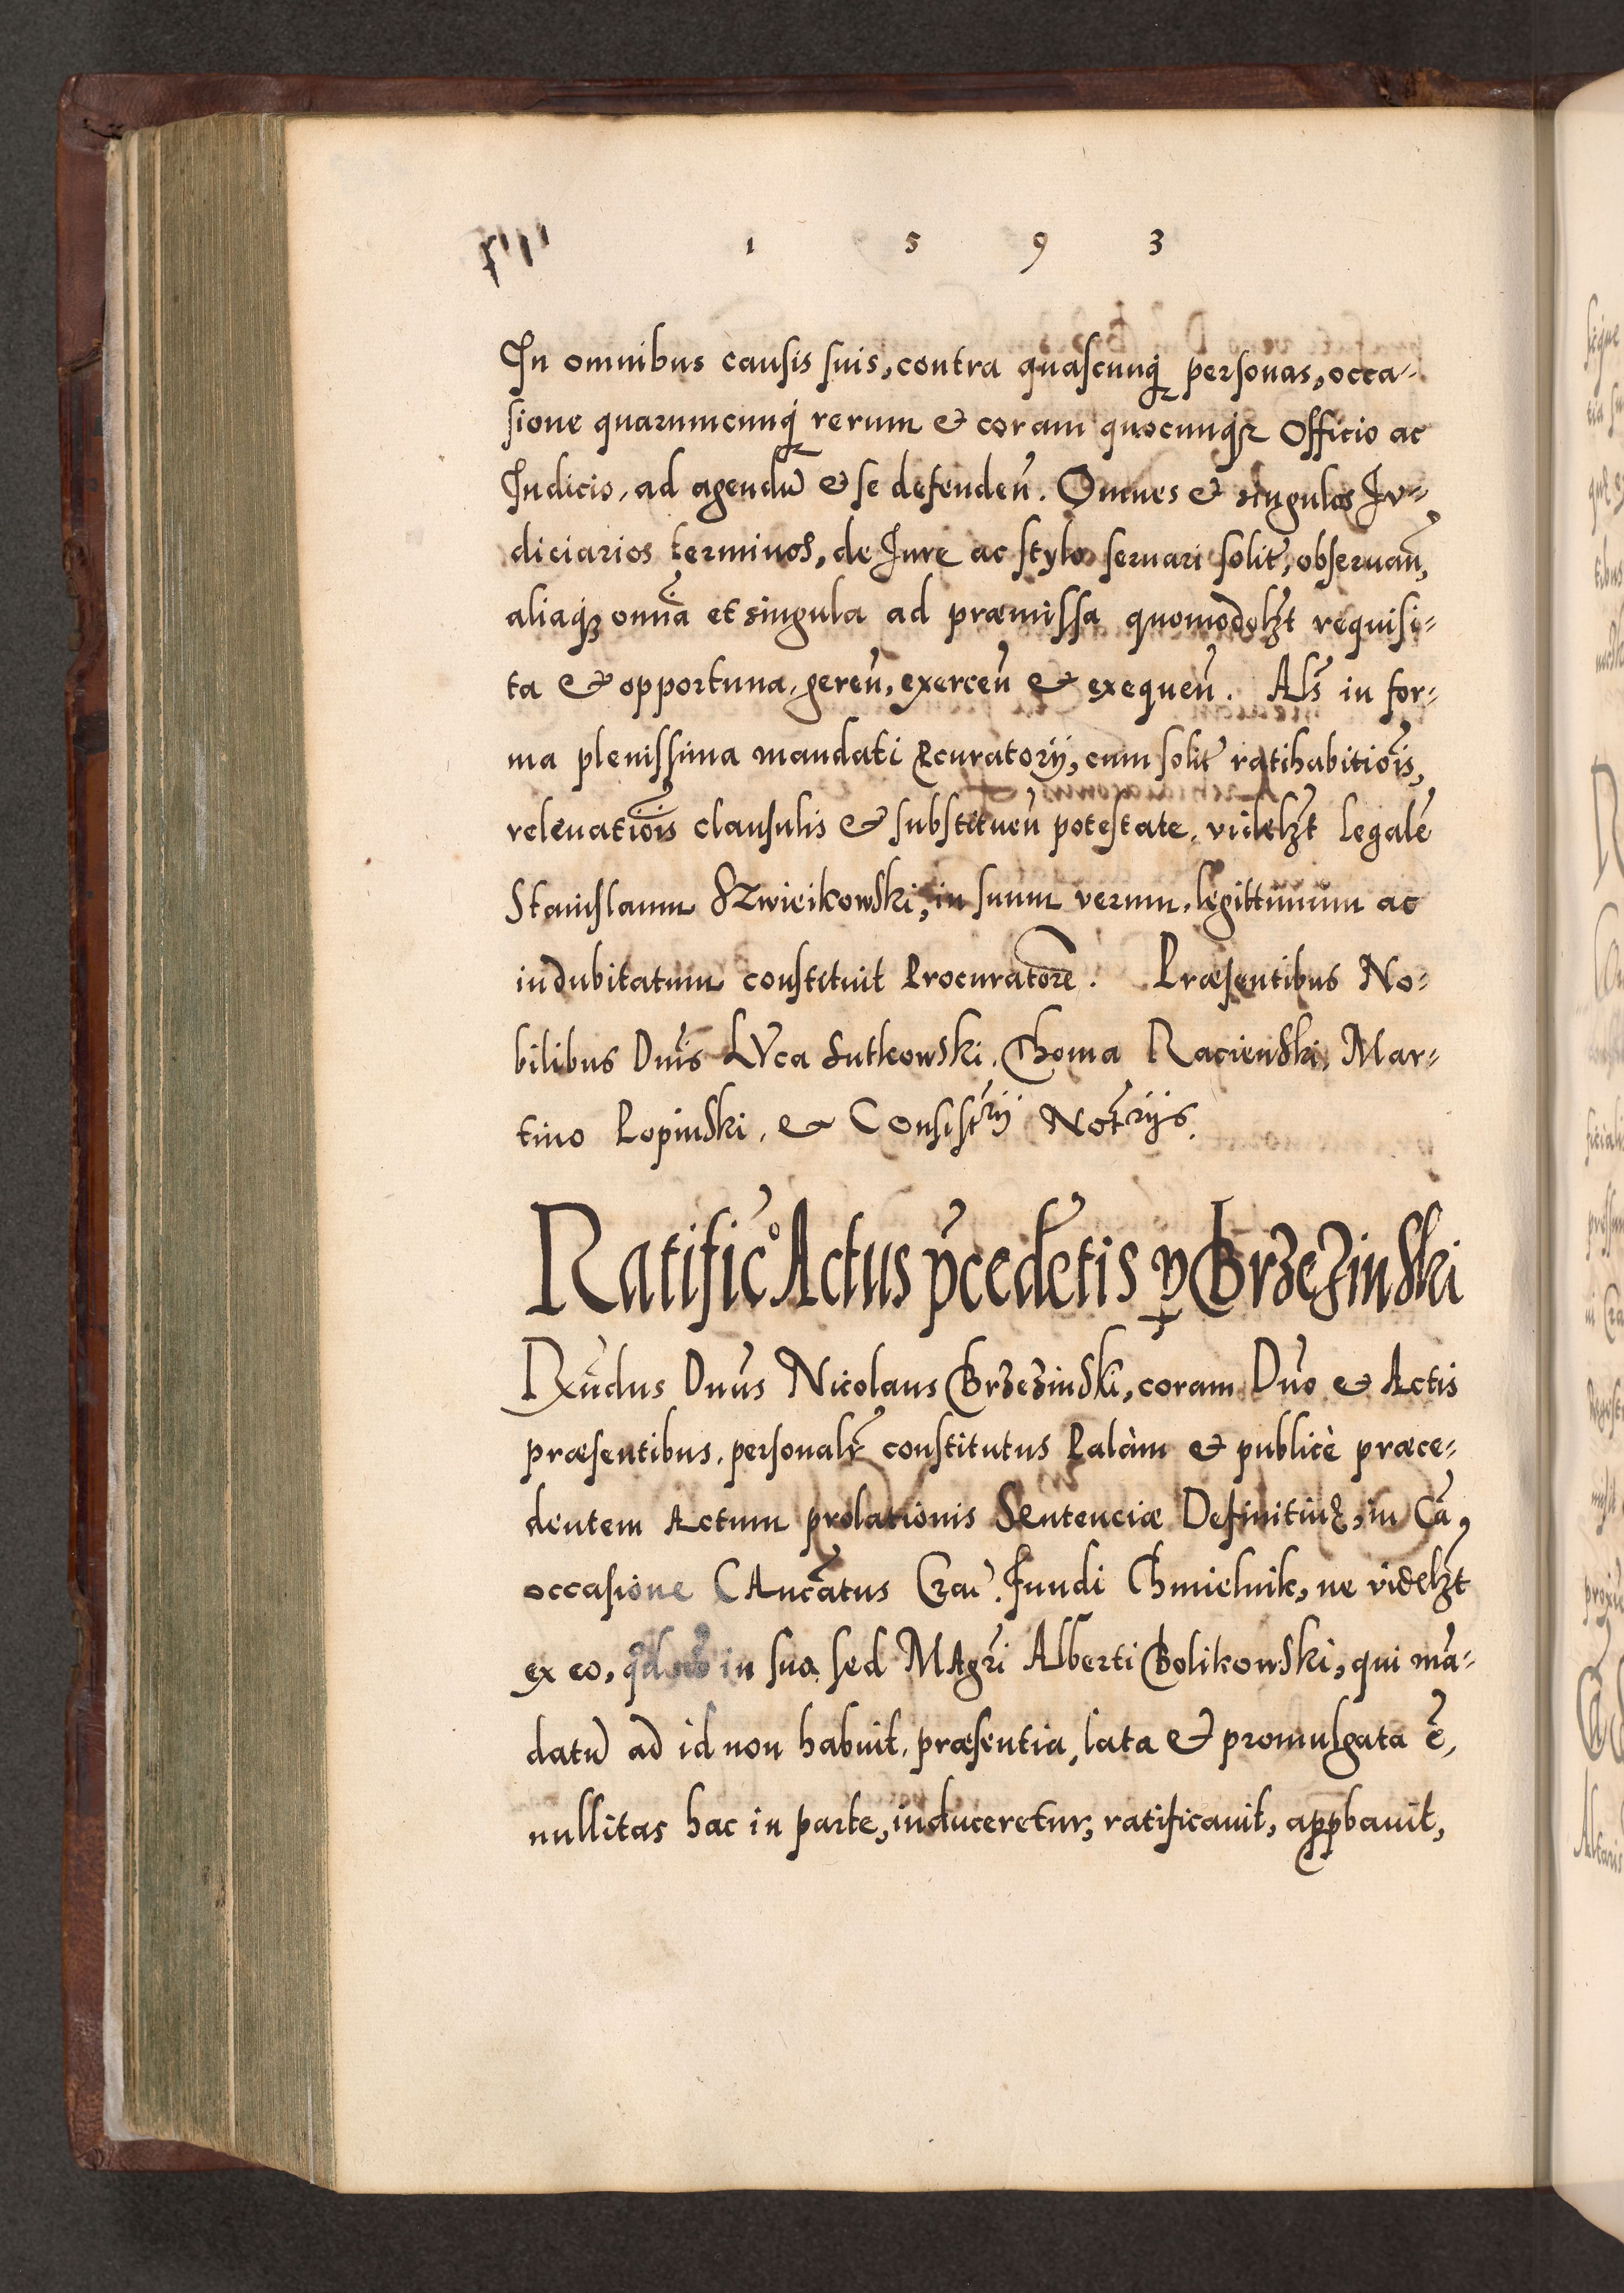 1 5 9 3
In omnibus causis suis, contra quascunq́ꝫ personas, occa-
sione quarumcunq́ꝫ rerum & coram quocunq́ꝫ Officio ac
Iudicio, ad agendũ & se defendeñ. Omnes & singulos Iu-
diciarios terminos, de Iure ac stylo seruari solit̃, obseruañ,
aliaqꝫ om̃ia et singula ad præmissa quomodolꝫt requisi-
ta & opportuna, gereñ, exerceñ & exequeñ. Als̃ in for-
ma plenissima mandati ꝓcuratorij, cum solit̃ ratihabitiõis,
releuatiõis clausulis & substitueñ potestate, videlꝫt Legalẽ
Stanislaum Szwieikowski, in suum verum, legittimum ac
indubitatum constituit Procuratorẽ. Præsentibus No-
bilibus Dñis LVca Sutkowski, Thoma Racienski, Mar-
tino Lopinski, & Consist̃rij Not̃rijs.
Ratific̃o Actus p̃cedẽtis ꝑ Brzezinski
Rñdus Dñus Nicolaus Brzezinski, coram Dño & Actis
præsentibus, personalr̃ constitutus Palàm & publicè præce-
dentem Actum prolationis Sentenciæ Definitiuę, in Cã,
occasione CAnc̃atus Crac̃. fundi Chmielnik, ne videlꝫt
ex eo, qd̃ nõ in sua sed MAgr̃i Alberti Bolikowski, qui mã-
datũ ad id non habuit, præsentia, lata & promulgata ẽ,
nullitas hac in parte, induceretur, ratificauit, apꝓbauit,